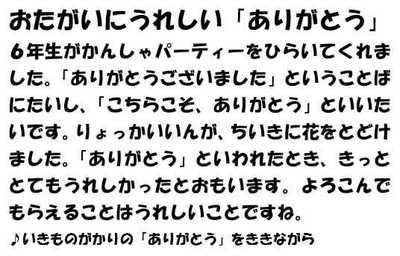 おたがいにうれしい「ありがとう」
６年生がかんしゃパーティーをひらいてくれま
した。「ありがとうございました」ということば
にたいし、「こちらこそ、ありがとう」といいた
いです。りょっかいいんが、ちいきに花をとどけ
ました。「ありがとう」といわれたとき、きっと
とてもうれしかったとおもいます。よろこんで
もらえることはうれしいことですね。
♪いきものがかりの「ありがとう」をききながら